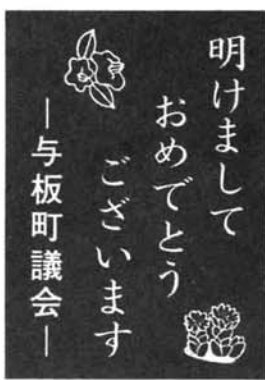 明けまして
おめでとう
ございます
―与板町議会―